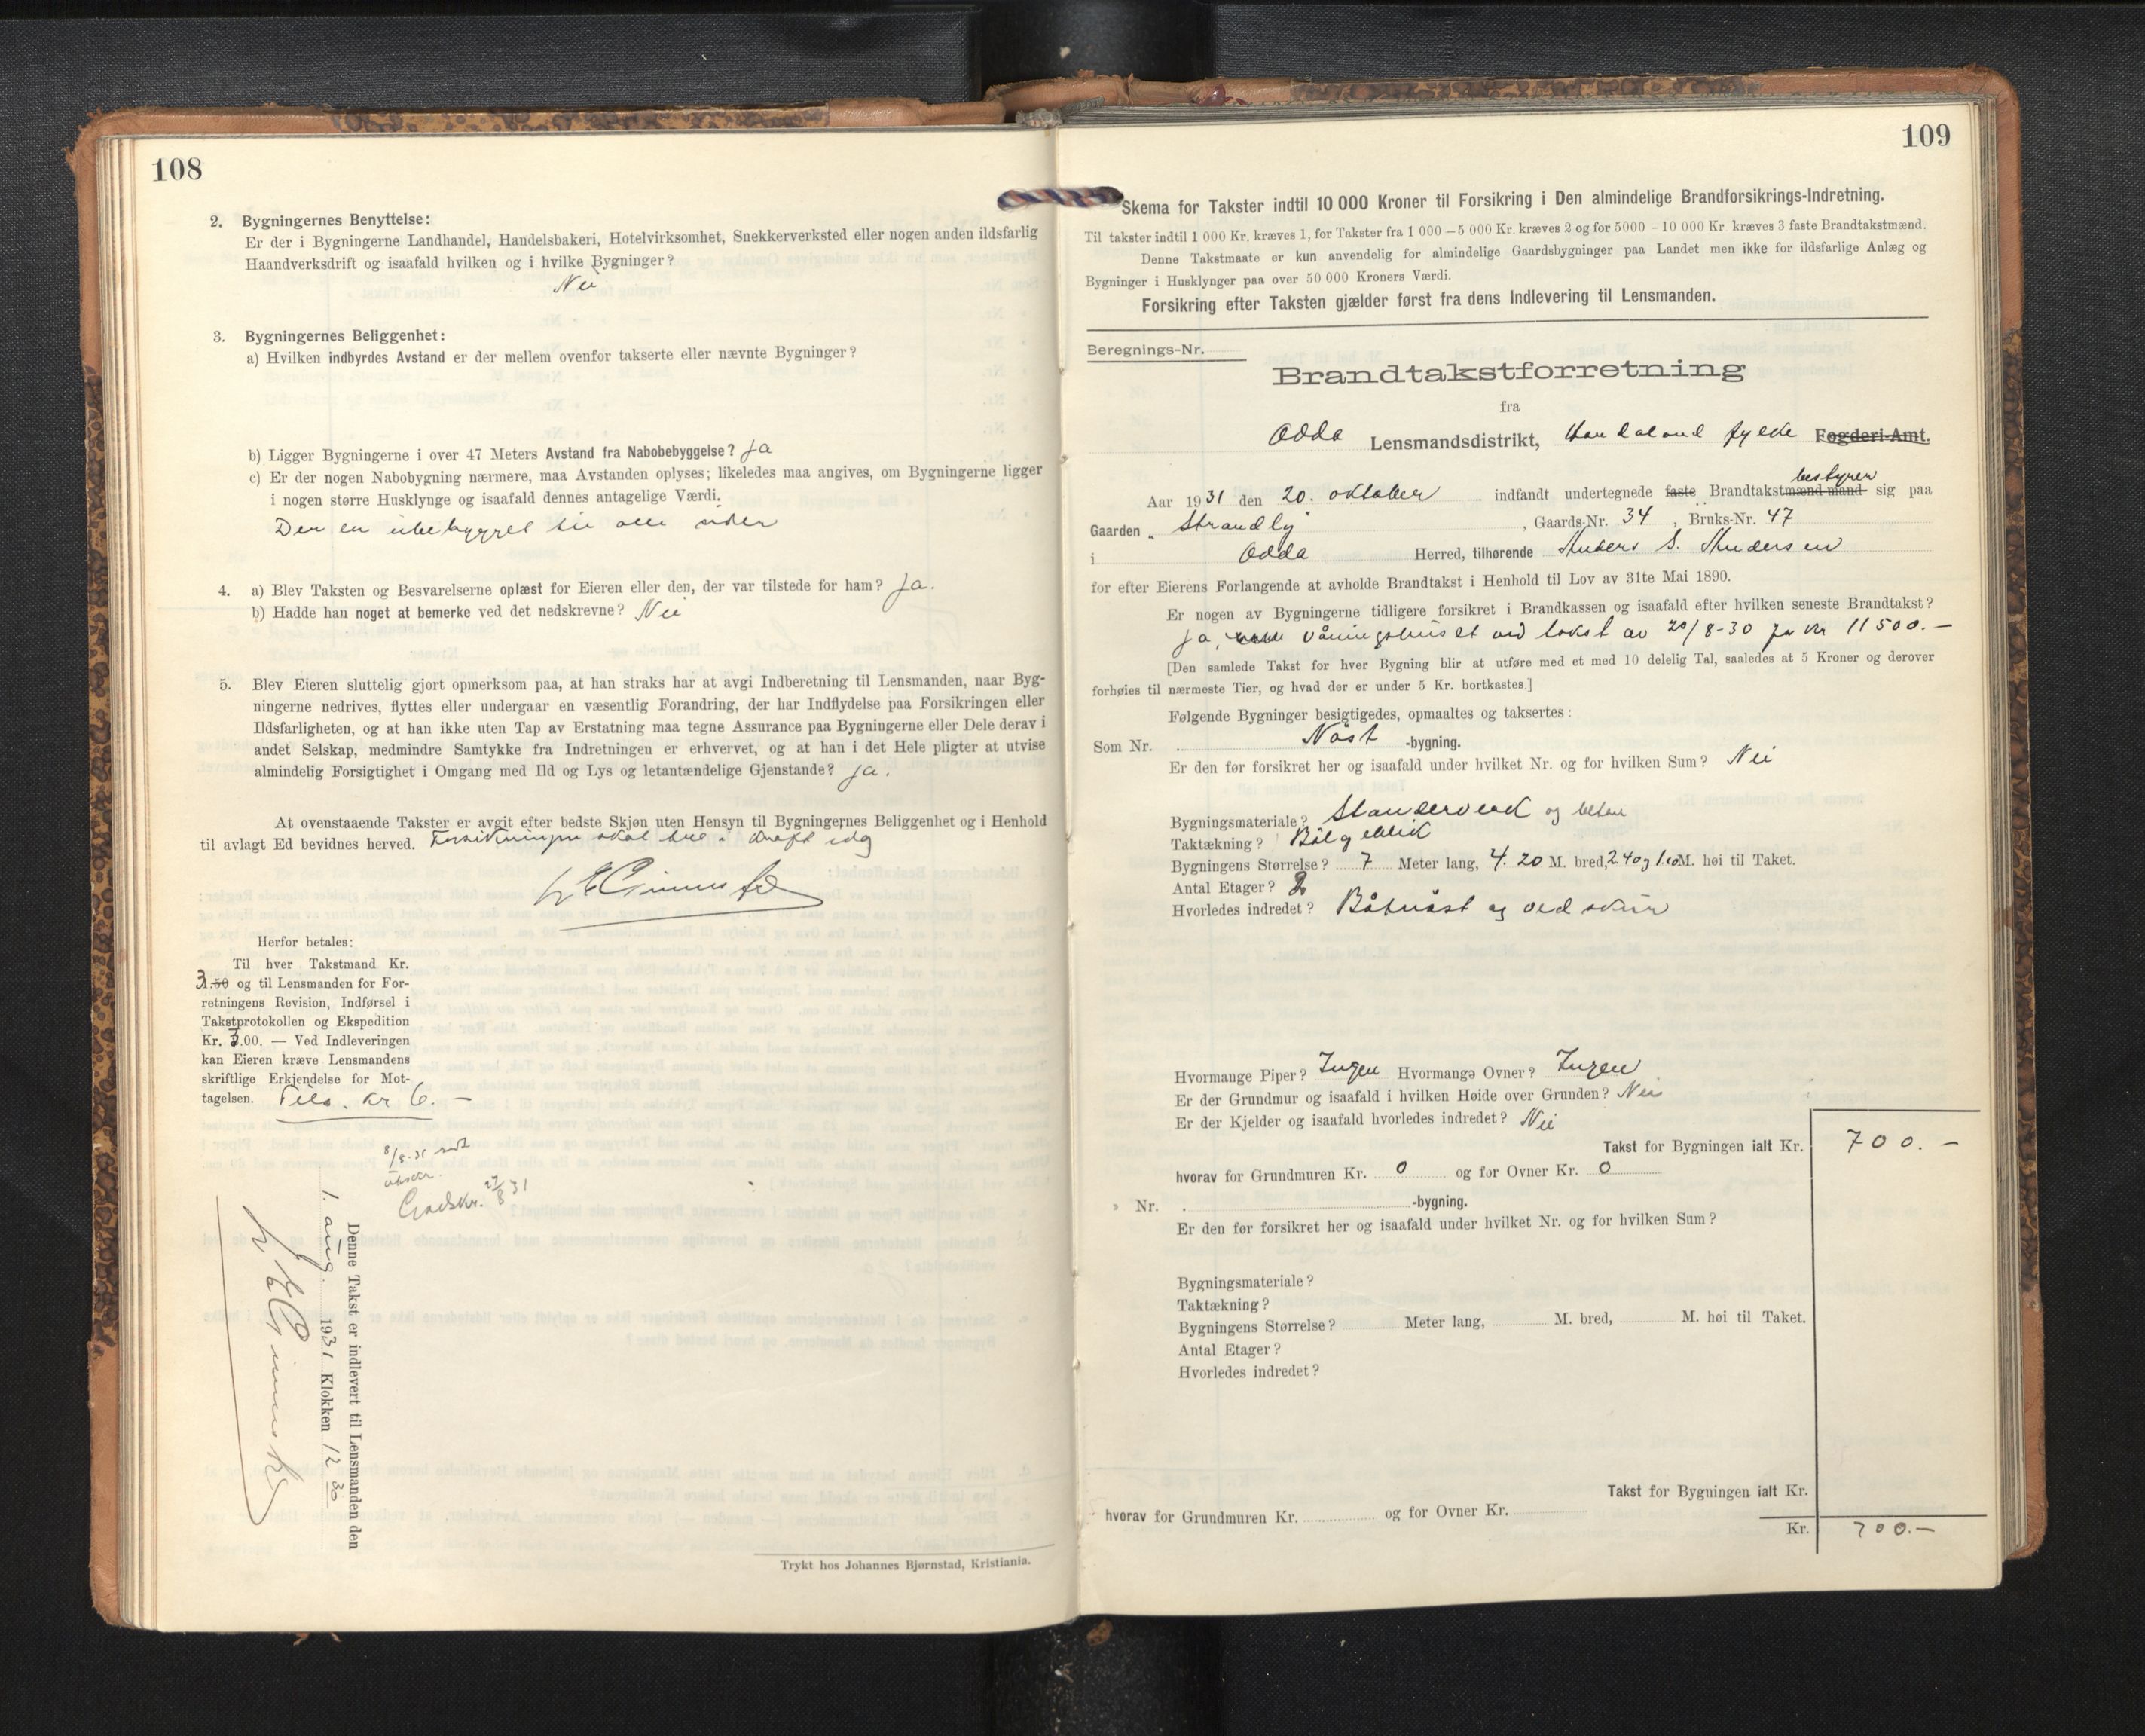 108
2. Bygningernes Benyttelse:
Er der i Bygningerne Landhandel, Handelsbakeri, Hotelvirksomhet, Snekkerverksted eller nogen anden ildsfarlig
Haandverksdrift og isaafald hvilken og i hvilke Bygninger?
Nei
3. Bygningernes Beliggenhet:
a) Hvilken indbyrdes Avstand er der mellem ovenfor takserte eller nævnte Bygninger?
b) Ligger Bygningerne i over 47 Meters Avstand fra Nabobebyggelse? Ja
c) Er der nogen Nabobygning nærmere, maa Avstanden oplyses; likeledes maa angives, om Bygningerne ligger
i nogen større Husklynge og isaafald dennes antagelige Værdi.
Den er ubebygget til alle sider
4. a) Blev Taksten og Besvarelserne oplæst for Eieren eller den, der var tilstede for ham? Ja.
b) Hadde han noget at bemerke ved det nedskrevne? Nei
5. Blev Eieren sluttelig gjort opmerksom paa, at han straks har at avgi Indberetning til Lensmanden, naar Byg-
ningerne nedrives, flyttes eller undergaar en væsentlig Forandring, der har Indflydelse paa Forsikringen eller
Ildsfarligheten, og at han ikke uten Tap av Erstatning maa tegne Assurance paa Bygningerne eller Dele derav i
andet Selskap, medmindre Samtykke fra Indretningen er erhvervet, og at han i det Hele pligter at utvise
almindelig Forsigtighet i Omgang med Ild og Lys og letantændelige Gjenstande? Ja.
At ovenstaaende Takster er avgit efter bedste Skjøn uten Hensyn til Bygningernes Beliggenhet og i Henhold
til avlagt Ed bevidnes herved. Forsikringen skal tre i kraft idag
Herfor betales:
Til hver Takstmand Kr.
3.50 og til Lensmanden for For-
retningens Revision, Indførsel i
Takstprotokollen og Ekspedition
Kr. 3.00. — Ved Indleveringen
kan Eieren kræve Lensmandens
skriftlige Erkjendelse for Mot-
tagelsen. Tils. kr 6. –
8/8-31
Godskr. 27/8 31
Denne Takst er indlevert til Lensmanden den
1. aug. 1931 Klokken 12 30
Trykt hos Johannes Bjørnstad, Kristiania.
109
Skema for Takster indtil 10 000 Kroner til Forsikring i Den almindelige Brandforsikrings-Indretning.
Til takster indtil 1 000 Kr. kræves 1, for Takster fra 1 000 – 5 000 Kr. kræves 2 og for 5000 – 10 000 Kr kræves 3 faste Brandtakstmænd.
Denne Takstmaate er kun anvendelig for almindelige Gaardsbygninger paa Landet men ikke for ildsfarlige Anlæg og
Bygninger i Husklynger paa over 50 000 Kroners Værdi.
Forsikring efter Taksten gjælder først fra dens Indlevering til Lensmanden.
Beregnings-Nr.
Brandtakstforretning
fra
Odda Lensmandsdistrikt, Hordaland fylke Fogderi-Amt.
bestyrer
Aar 1931 den 20. oktober indfandt undertegnede faste Brandtakstmænd mand sig paa
Gaarden „Strandly", Gaards-Nr. 34, Bruks-Nr. 47
i Odda Herred, tilhørende Anders S. Andersen
for efter Eierens Forlangende at avholde Brandtakst i Henhold til Lov av 31te Mai 1890.
Er nogen av Bygningerne tidligere forsikret i Brandkassen og isaafald efter hvilken seneste Brandtakst?
Ja, våningshuset ved takst av 20/8-30 for kr 11500.–
[Den samlede Takst for hver Bygning blir at utføre med et med 10 delelig Tal, saaledes at 5 Kroner og derover
forhøies til nærmeste Tier, og hvad der er under 5 Kr. bortkastes.]
Følgende Bygninger besigtigedes, opmaaltes og taksertes:
Som Nr. . Nøst -bygning.
Er den før forsikret her og isaafald under hvilket Nr. og for hvilken Sum? Nei
Bygningsmateriale? Standerverk og betong
Taktækning? Bølgeblikk
Bygningens Størrelse? 7 Meter lang, 4.20 M. bred, 2.40 og 1.60 M. høi til Taket.
Antal Etager? 2
Hvorledes indredet? Båtnøst og vedskur
Hvormange Piper? Ingen Hvormange Ovner? Ingen
Er der Grundmur og isaafald i hvilken Høide over Grunden? Nei
Er der Kjelder og isaafald hvorledes indredet? Nei
Takst for Bygningen ialt Kr. 700.–
hvorav for Grundmuren Kr. 0 og for Ovner Kr. 0
» Nr. . -bygning.
Er den før forsikret her og isaafald under hvilket Nr. og for hvilken Sum?
Bygningsmateriale?
Taktækning?
Bygningens Størrelse? Meter lang, M. bred, M. høi til Taket.
Antal Etager?
Hvorledes indredet?
Takst for Bygningen ialt Kr.
hvorav for Grundmuren Kr. og for Ovner Kr.
Kr. 700.–